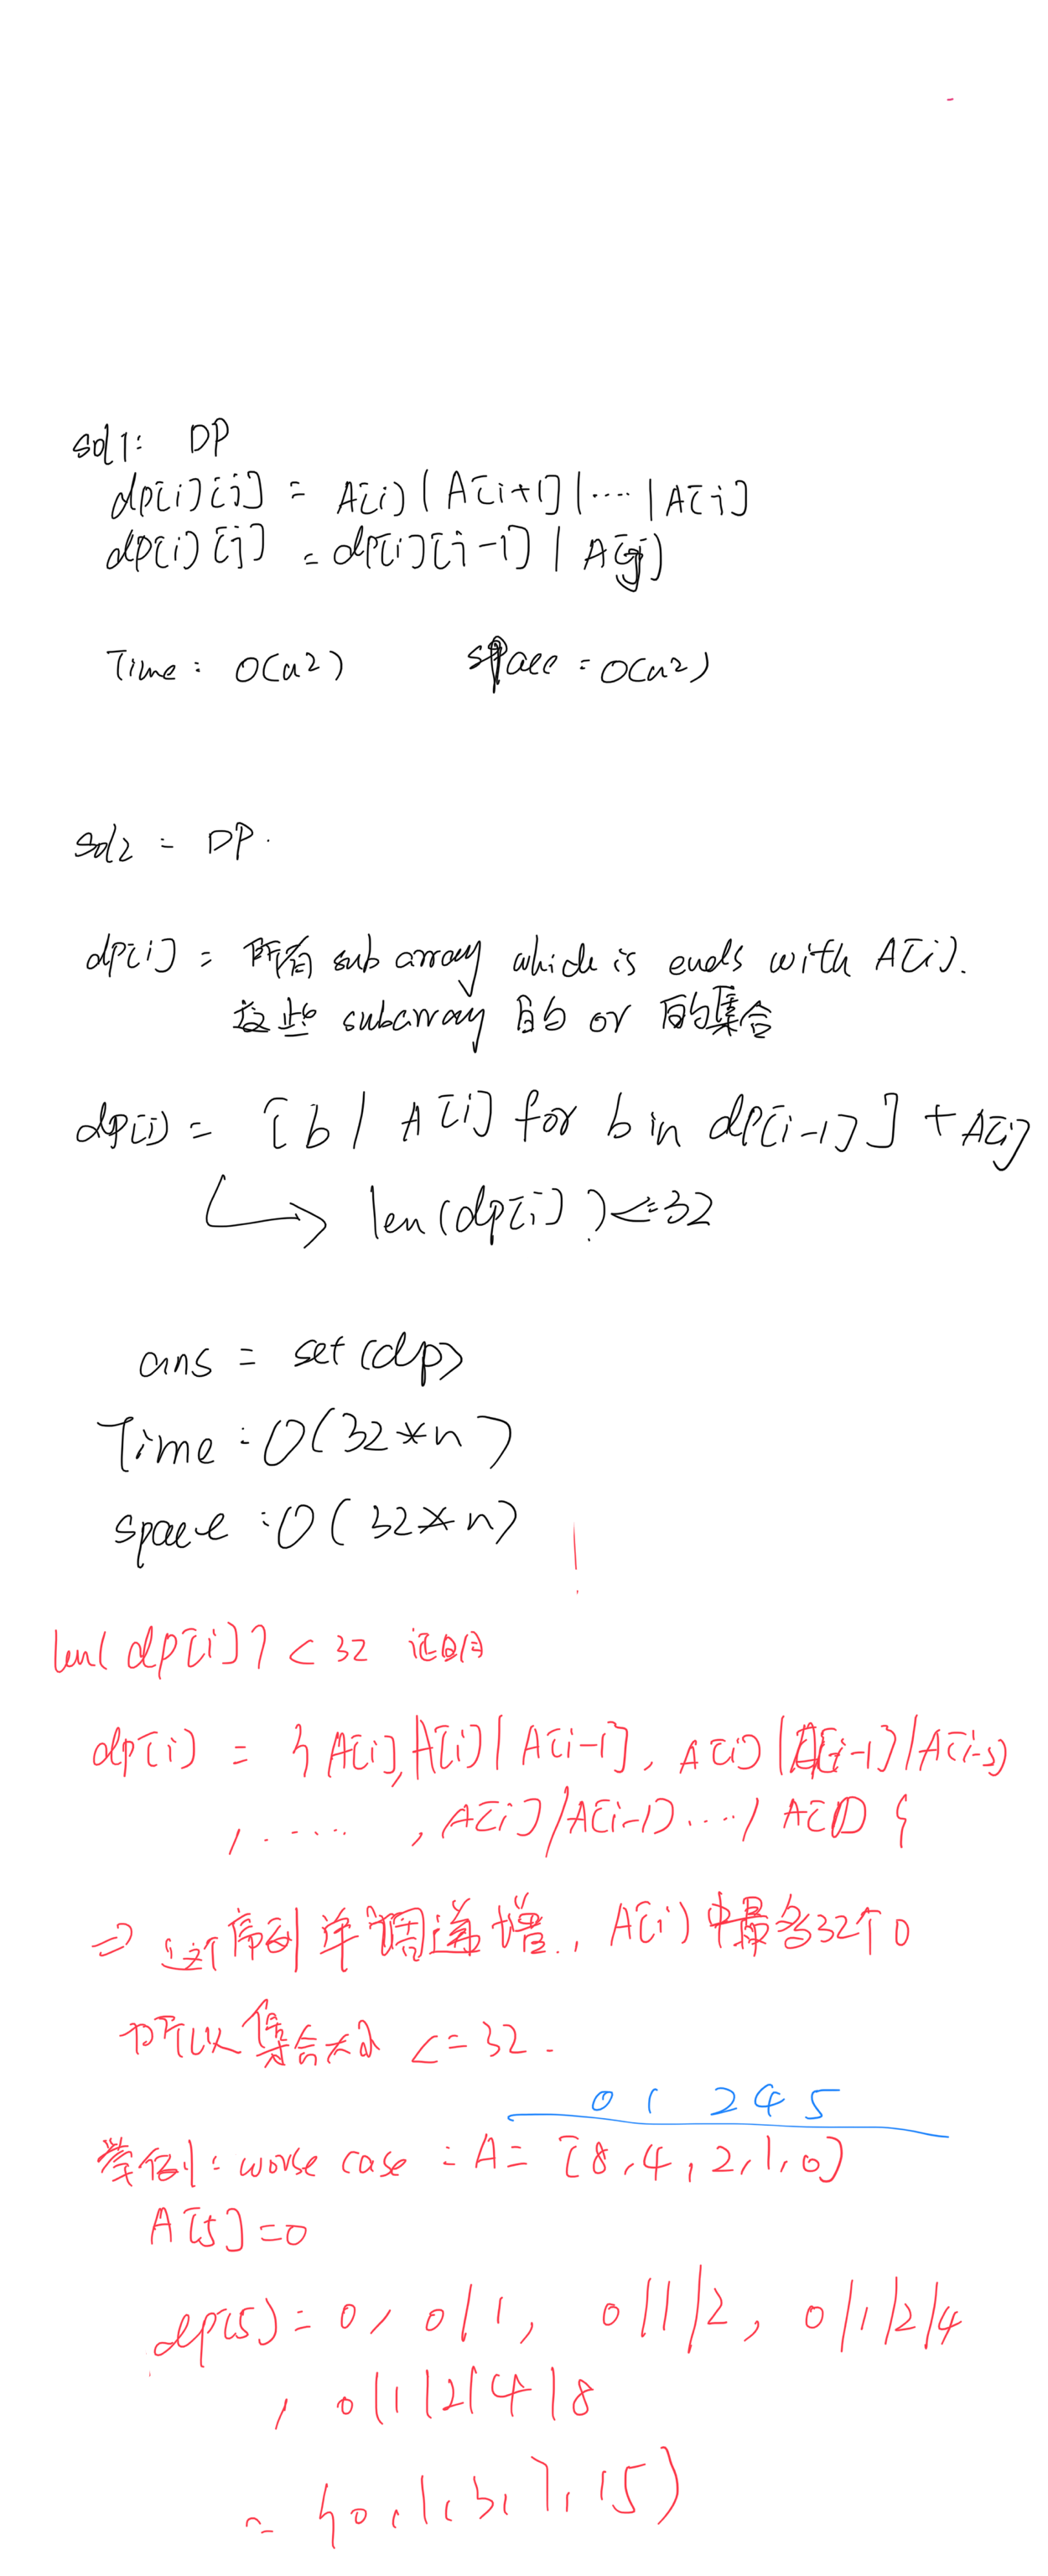 sol1: DP
dp[i][j] = A[i] | A[i+1] | .... | A[j]
dp[i][j] = dp[i][j-1] | A[j]
Time: O(n2) space = O(n2)
sol2 = DP.
dp[i] = 所有 subarray which is ends with A[i].
这些 subarray 的 or 的集合
dp[i] = [b | A[i] for b in dp[i-1]] + A[i]
len(dp[i]) <= 32
ans = set(dp)
Time: O(32*n)
space: O(32*n)
len(dp[i]) < 32 证明
dp[i] = {A[i], A[i] | A[i-1], A[i] | A[i-1] | A[i-2]
, ....., A[i] | A[i-1] .... | A[1]}
⇒ 这个序列单调递增, A[i]中最多32个0
所以集合大小 <= 32.
0 1 2 4 5
举例: worse case: A = [8,4,2,1,0]
A[5] = 0
dp[5] = 0, 0|1, 0|1|2, 0|1|2|4
, 0|1|2|4|8
= {0,1,3,7,15}